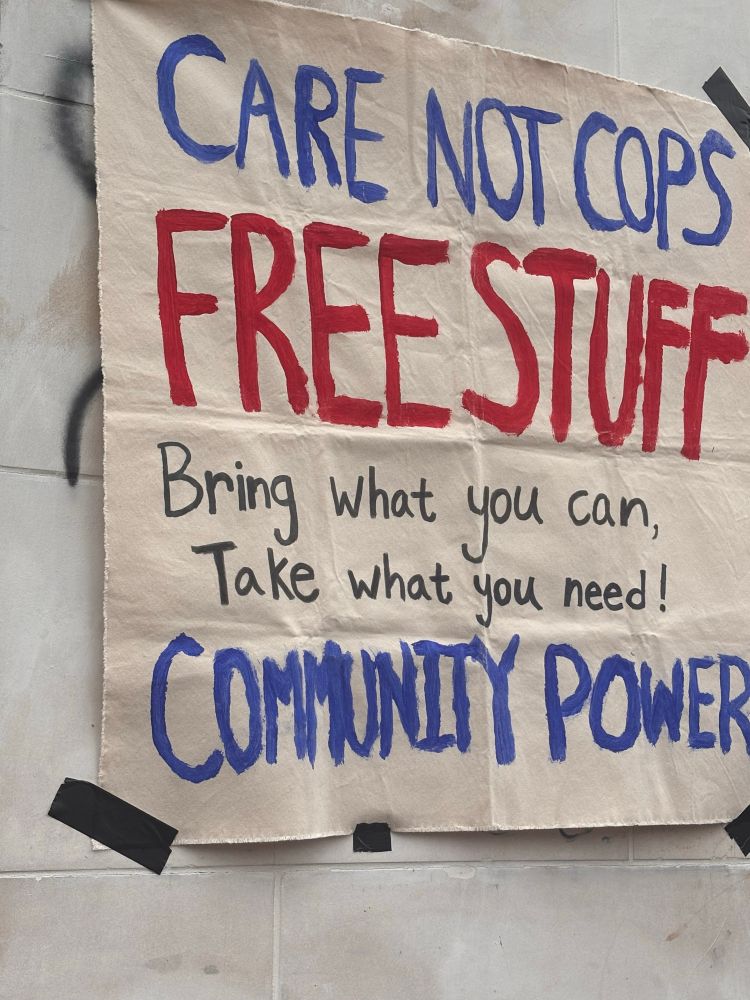 CARE NOT COPS
FREE STUFF
Bring what you can,
Take what you need!
COMMUNITY POWER